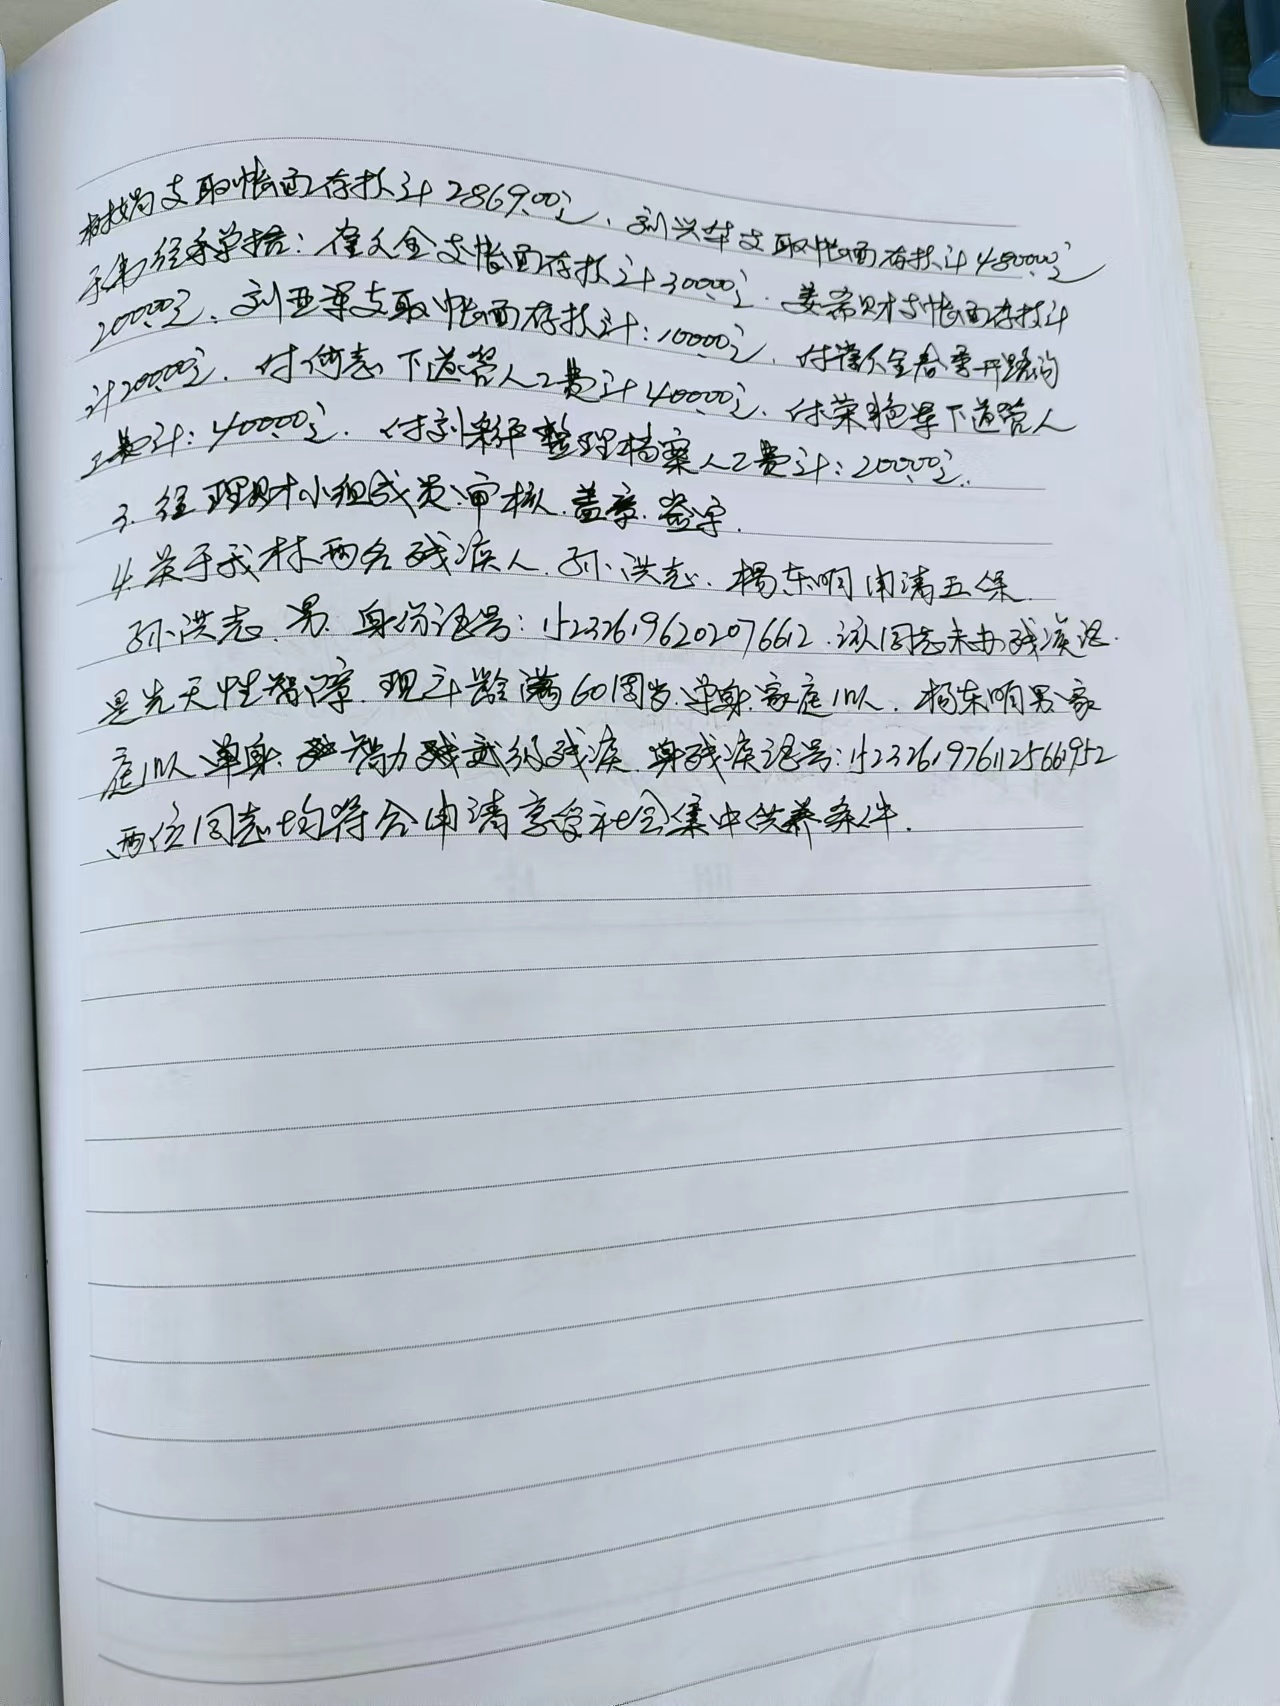 支取帐面存款计2869.00元、刘兴华支取帐面存款计4800.00元
经手单据：崔久全支帐面存款计3000.00元、姜希财支帐面存款计
2000.00元、刘亚军支取帐面存款计：1000.00元、付崔久全春季开路沟
计2000.00元、付何志下道管人工费计4000.00元、付荣艳军下道管人
工费计：4000.00元、付刘彩环整理档案人工费计：2000.00元.
3. 经理财小组成员审核.盖章.签字.
4. 关于我村两名残疾人.孙洪志.杨东明申请五保.
孙洪志.男.身份证号：152326196202076612.该同志未办残疾证.
是先天性智障.现年龄满60周岁.单身.家庭1口人.杨东明男家
庭1口人单身.智力残贰级残疾.残疾证号：15232619761125661952
两位同志均符合申请享受社会集中供养条件.